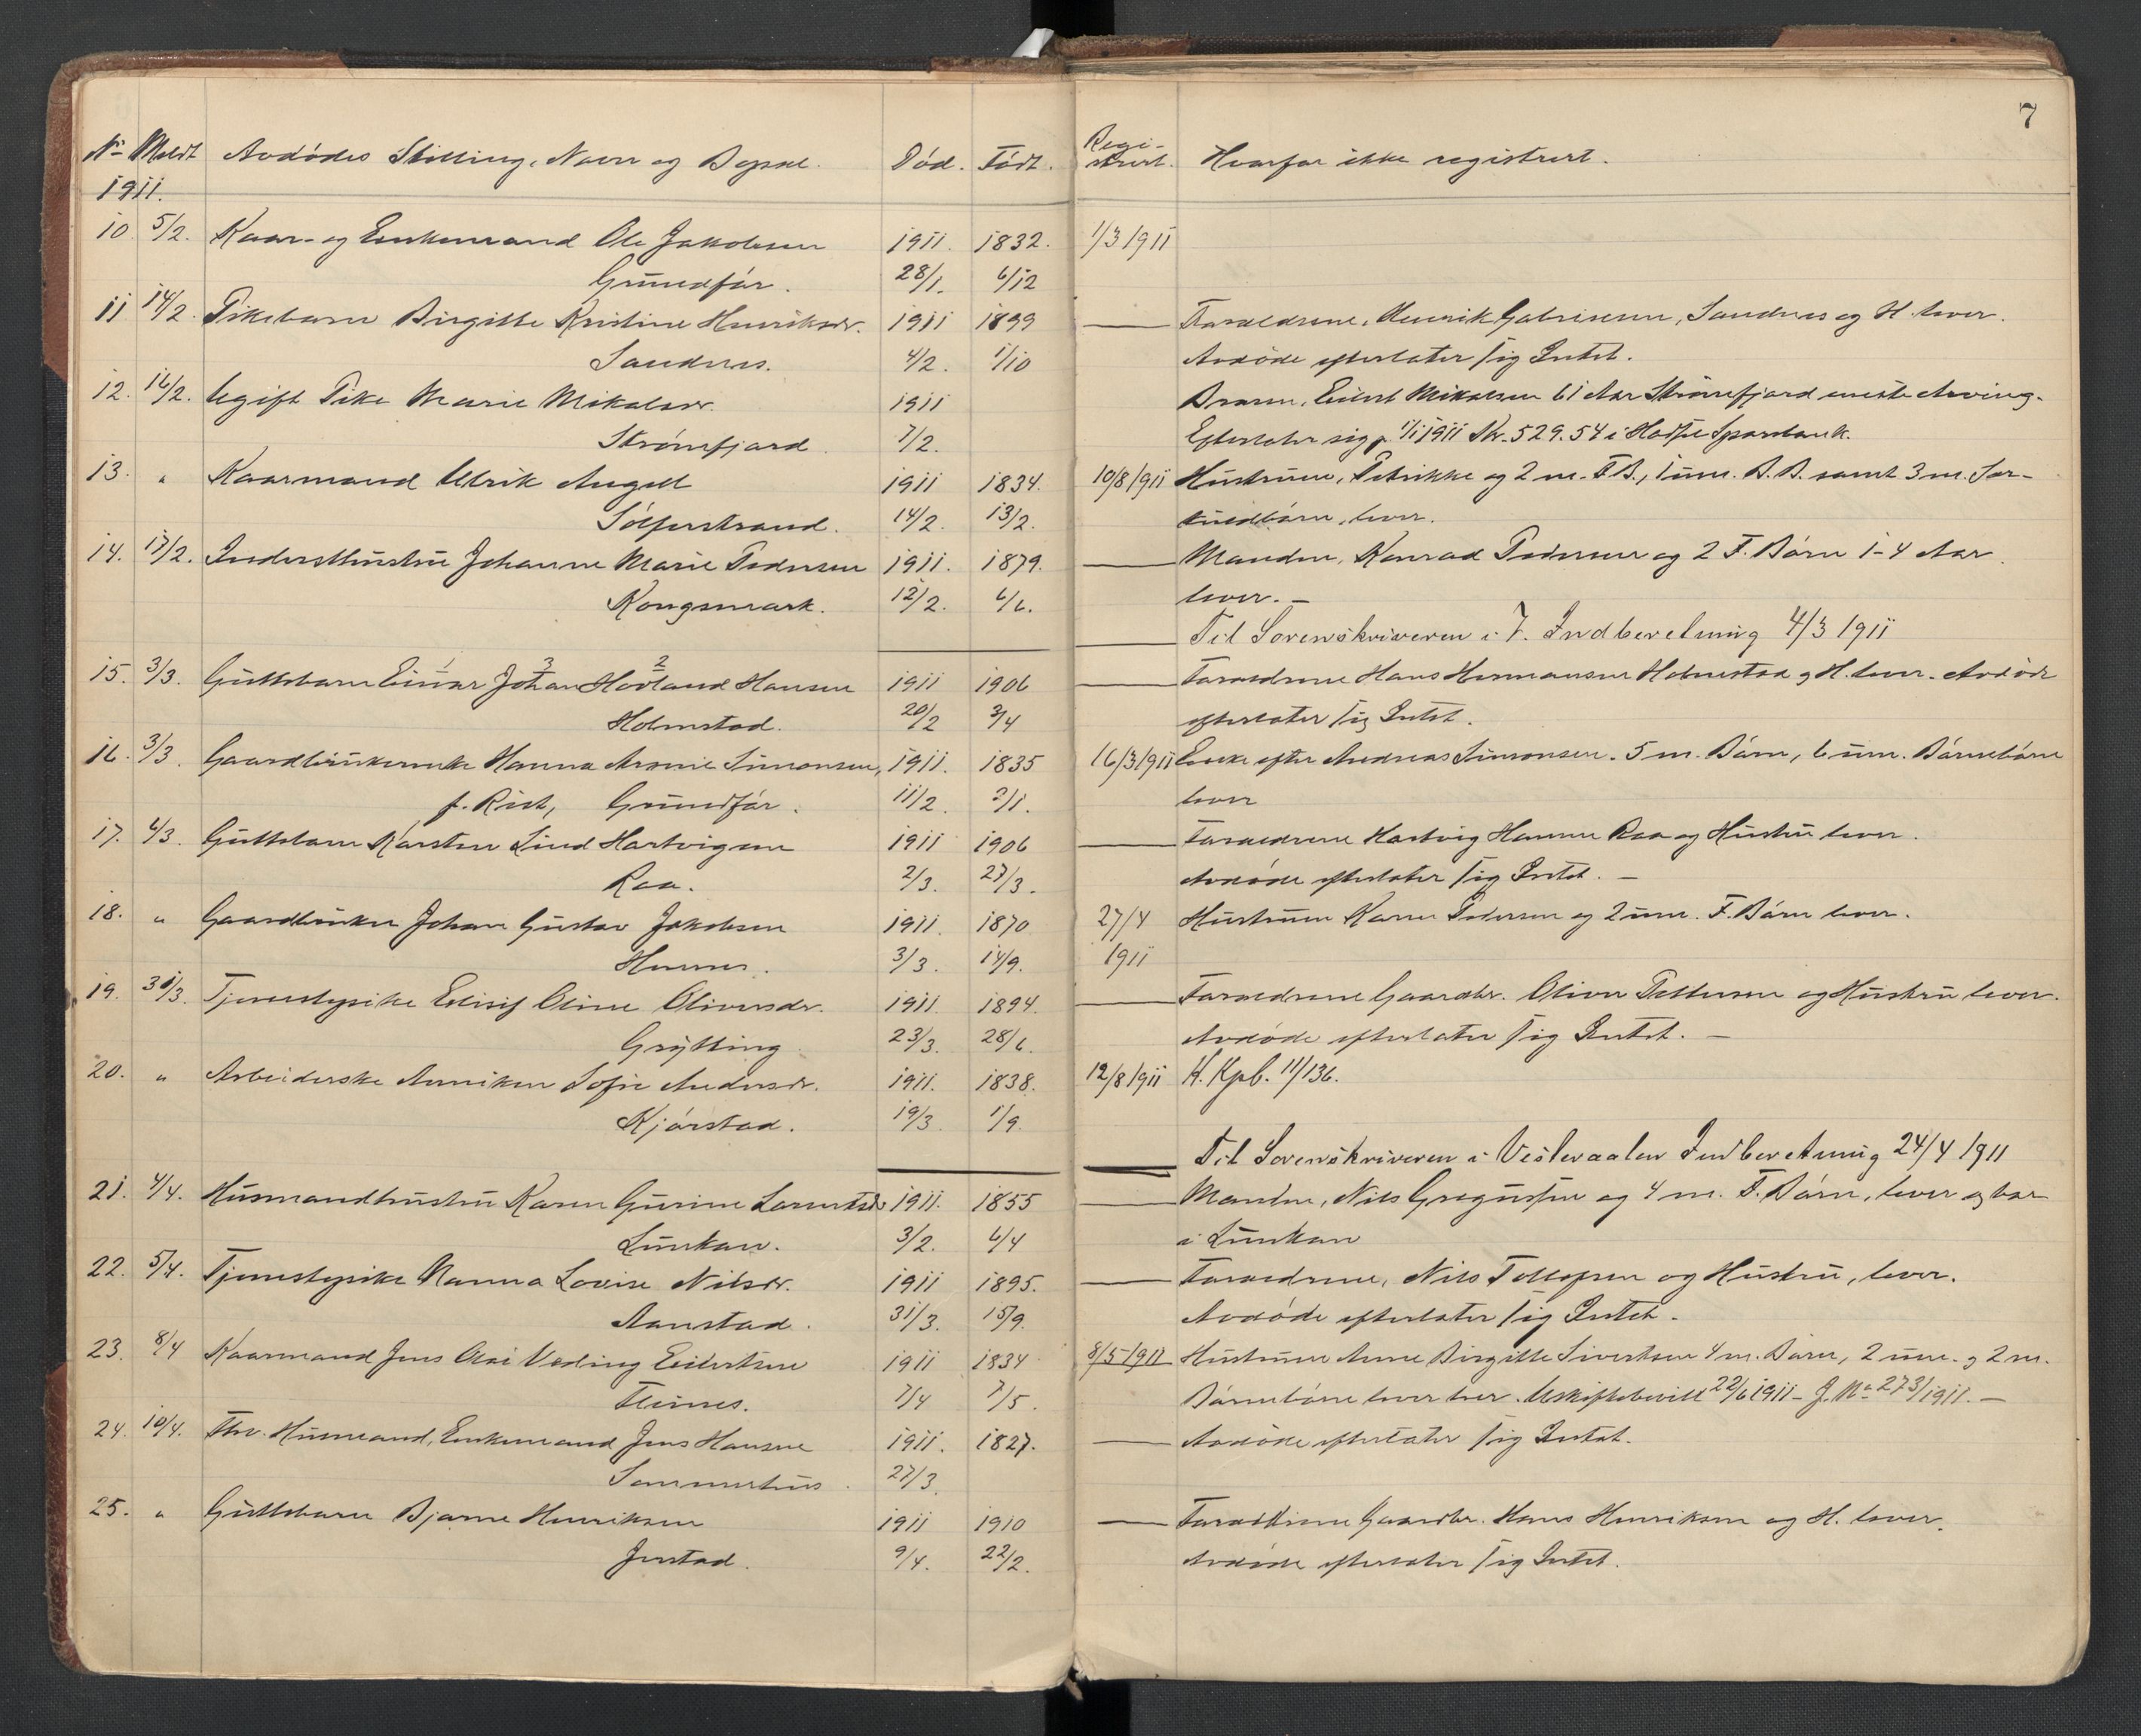 7
No Meldt Avdödes Stilling, Navn og Bopæl. Död. Födt. Regi-
strert. Hvorfor ikke registrert.
1911.
10 5/2. Kaar- og Enkemand Ole Jakobsen 1911. 1832. 1/3 1911
Grundför. 28/1. 6/12
11 14/2. Pikebarn Birgitte Kristine Henriksdr. 1911 1899 — Forældrene, Henrik Gabrielsen, Sandnes og H. lever.
Sandnes. 4/2. 1/10 Avdöde efterlater sig Intet.
12. 16/2. Ugift Pike Marie Mikalsdr. 1911 Broren, Eilert Mikalsen 61 Aar Strönefjord eneste Arving.
Strönefjord 7/2. Efterlater sig pr 1/1 1911 Kr. 529.54 i Hadsel Sparebank.
13. " Kaarmand Ulrik Angell 1911 1834. 10/8 1911 Hustruen, Petrikke og 2 m. F.B., 1 um. B.B. samt 3 m. Sær-
Sölferstrand. 14/2. 13/2. kuldbörn, lever.
14. 17/2. Indersthustru Johanne Marie Pedersen 1911. 1879. — Manden, Konrad Pedersen og 2 F. Börn 1-4 Aar
Kongsmark. 12/2. 6/6. lever. —
— Til Sorenskriveren i V. Indberetning 4/3 1911
15. 3/3. Guttebarn Einar Johan Hovland Hansen 1911 1906 — Forældrene Hans Hermansen Holmstad og H. lever. Avdöde
1 3 2
Holmstad. 20/2 3/4 efterlater sig Intet.
16. 3/3. Gaardbrukerenke Hanna Aronie Simonsen, 1911. 1835 16/3 1911 Enke efter Andreas Simonsen. 5 m. Börn, 6 um. Börnebörn
f. Rist, Grundför. 11/2 2/1. lever
17. 6/3. Guttebarn Karsten Lind Hartvigsen 1911 1906 — Forældrene Hartvig Hansen Raa og Hustru lever.
Raa. 2/3. 27/3. Avdöde efterlater sig Intet. —
18. " Gaardbruker Johan Gustav Jakobsen 1911. 1870 27/4 Hustruen Karen Pedersen og 2 um. F. Börn lever.
3/3. 14/9. 1911
19. 31/3. Tjenestepike Edisif Oline Oliversdr. 1911. 1894. — Forældrene Gaardbr. Oliver Pettersen og Hustru lever.
Grytting 23/3. 28/6. Avdöde efterlater sig Intet. —
20. " Arbeiderske Anniken Sofie Andersdr. 1911. 1838. 12/8 1911 H. Kpb. 11/136.
Kjörstad. 19/3. 1/9.
— Til Sorenskriveren i Vesteraalen Indberetning 24/4 1911
21. 4/4. Husmandhustru Karen Gurine Larentsdr 1911. 1855 — Manden, Nils Gregusen og 4 m. F. Börn, lever og bor
Lunkan. 3/2. 6/4 i Lunkan
22. 5/4. Tjenestepike Nanna Lovise Nilsdr. 1911 1895. — Forældrene, Nils Tollefsen og Hustru, lever.
Aanstad. 31/3. 15/9. Avdöde efterlater sig Intet.
23. 8/4 Kaarmand Jens Olai Væding Eilertsen 1911 1834 8/5 1911 Hustruen Anne Birgitte Sivertsen 4 m. Börn, 2 um. og 2 m.
Flines. 7/4 7/5. Börnebörn lever her. Uskiftebevill 22/6 1911 — J. No 273/1911. —
24. 10/4. Fhv. Husmand, Enkemand Jens Hansen 1911. 1827. — Avdöde efterlater sig Intet.
27/3.
25. " Guttebarn Bjarne Henriksen 1911 1910 — Forældrene Gaardbr. Hans Henriksen og H. lever.
Jenstad. 9/4. 22/2. Avdöde efterlater sig Intet.